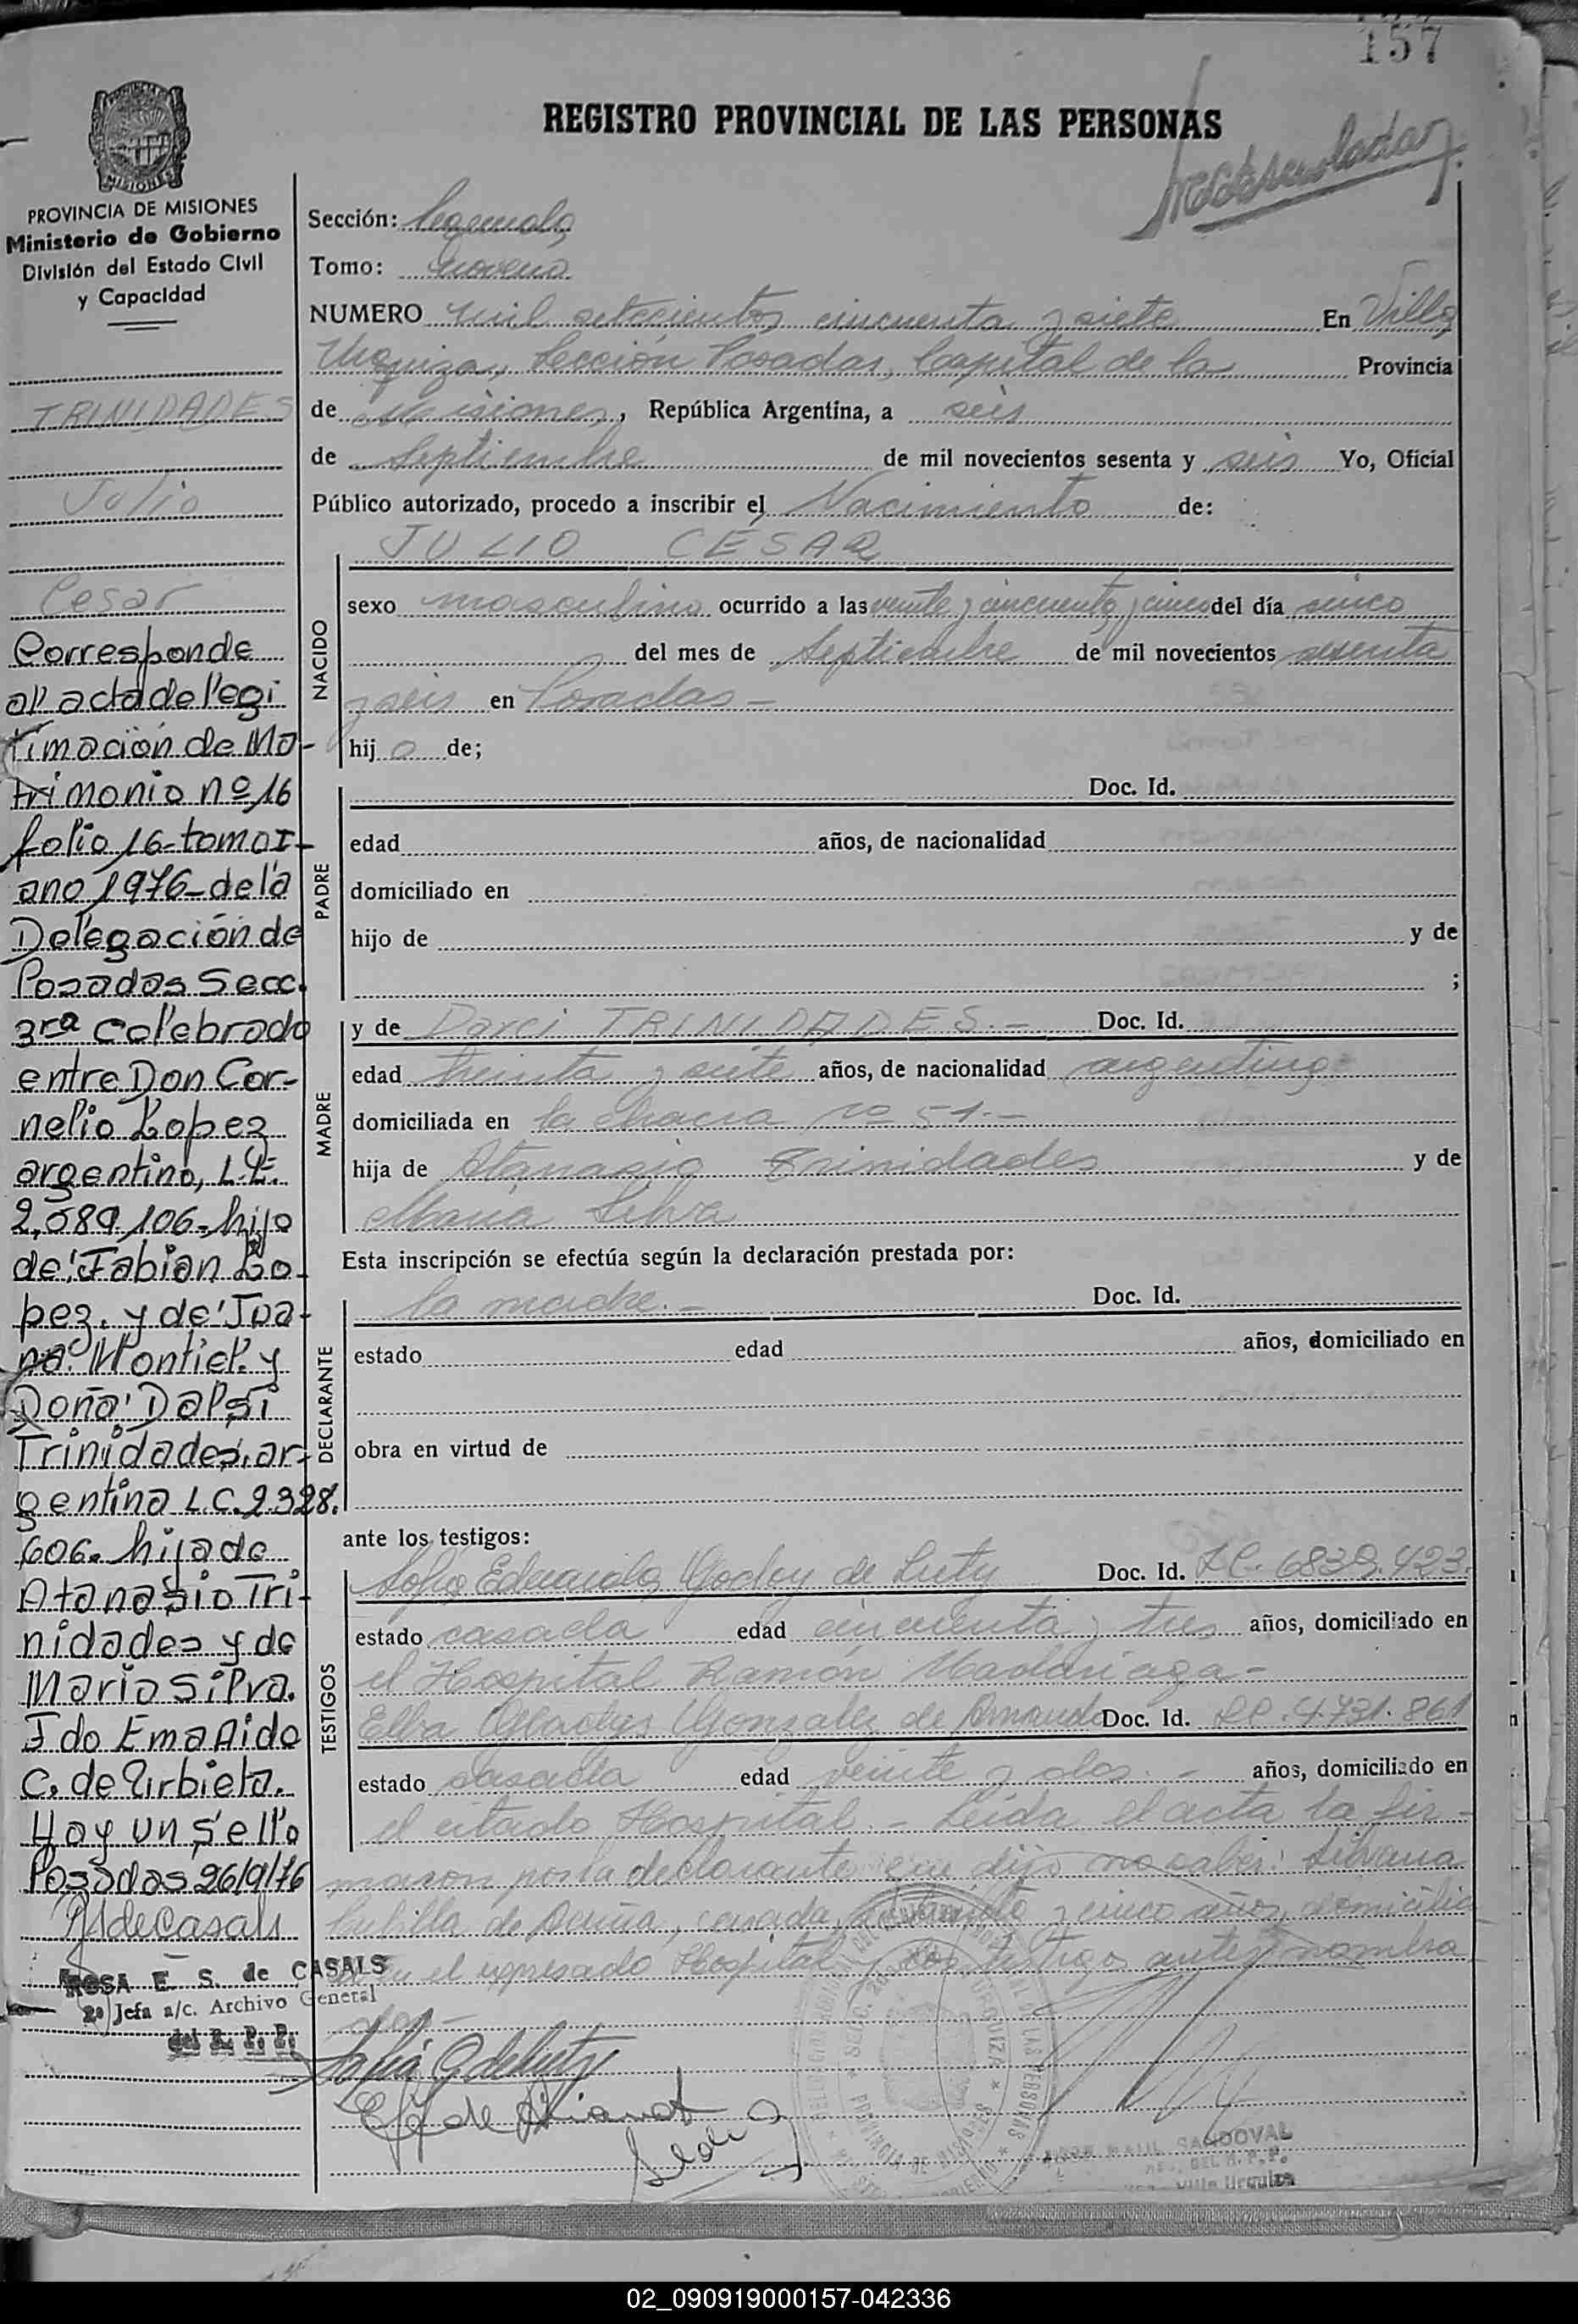 157
REGISTRO PROVINCIAL DE LAS PERSONAS
MISIONES
PROVINCIA DE MISIONES
Ministerio de Gobierno
División del Estado Civil
y Capacidad
TRINIDADES
Julio
Cesar
Corresponde
al acta de legi
timación de Ma-
trimonio nº 16
folio 16-tomo I-
año 1976-de la
Delegación de
Posadas Secc.
3ra celebrado
entre Don Cor-
nelio Lopez
argentino, L.E.
2,589.106-hijo
de: Fabian Lo-
pez. y de: Jua-
na Montiel. y
Doña: Dalsi
Trinidades, ar-
gentina L.C. 2.328.
606. hija de
Atanasio Tri-
nidades y de
Maria Silva.
Fdo Ema Aido
C. de Urbieta.
Hay un sello
Posadas 26/9/76
ROSA E. S. de CASALS
2ª Jefa a/c. Archivo General
del R. P. P.
Sección: Segunda
Tomo: noveno
NUMERO mil setecientos cincuenta y siete En Villa
Urquiza, Sección Posadas, Capital de la Provincia
de Misiones, República Argentina, a seis
de Septiembre de mil novecientos sesenta y seis Yo, Oficial
Público autorizado, procedo a inscribir el Nacimiento de:
NACIDO
JULIO CESAR
sexo masculino ocurrido a las veinte y cincuenta y cinco del día cinco
del mes de Septiembre de mil novecientos sesenta
y seis en Posadas -
hij o de;
PADRE
Doc. Id.
edad años, de nacionalidad
domiciliado en
hijo de y de
;
MADRE
y de Darci TRINIDADES.- Doc. Id.
edad treinta y siete años, de nacionalidad argentina
domiciliada en la chacra nº 51.-
hija de Atanasio Trinidades y de
Maria Silva
Esta inscripción se efectúa según la declaración prestada por:
DECLARANTE
la madre.- Doc. Id.
estado edad años, domiciliado en
obra en virtud de
ante los testigos:
TESTIGOS
Sofia Eduarda Godoy de Luty Doc. Id. LC. 6839.423
estado casada edad cincuenta y tres años, domiciliado en
el Hospital Ramón Madariaga-
Elba Gladys Gonzalez de Doc. Id. LC. 4.731.861
estado casada edad veinte y dos.- años, domiciliado en
el citado Hospital.- Leida el acta la fir-
maron por la declarante que dijo no saber: Silvana
de Acuña, casada, y cinco años, domicilia
en el expresado Hospital y los testigos antes nombra
dos-
SANDOVAL
DEL R. P. P.
Villa Urquiza
02_090919000157-042336